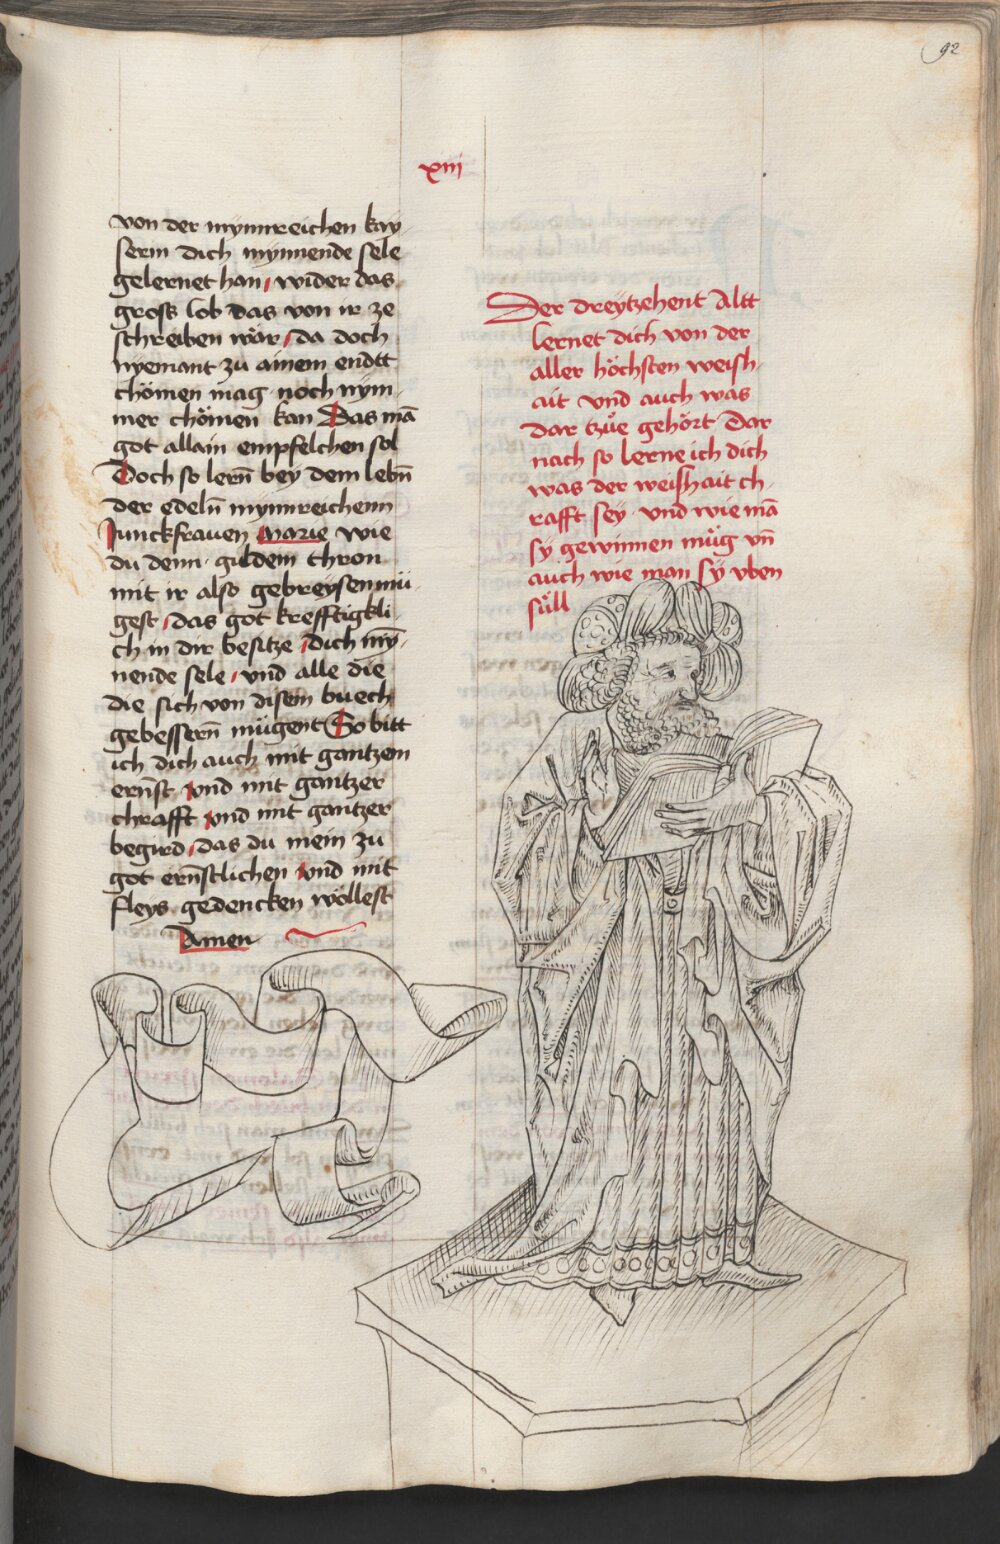 92
xiij
von der mynnreichen kay
serin dich mynnende sele
gelernet han, wider das
gross lob das von ir ze
schreiben wär, da doch
nyemant zu ainem endtt
chömen mag noch nym
mer chömen kan Das mā
got allain empfelchen sol
Doch so lern̄ bey dem lebn̄
der edeln̄ mynnreichenn
Junckfrauen Marie wie
du denn guldem thron
mit ir also gebreysen mü
gest, das got krefftigkli
ch in dir besitze, dich mȳ
nende sele, vnd alle die
die sich von disem buech
gebessern̄ mügent So bitt
ich dich auch mit gantzem
ern̄st vnd mit gantzer
chrafft vnd mit gantzer
begird, das du mein zu
got ern̄stlichen vnd mit
fleys gedencken wöllest
Amen
Der dreytzehent Altt
lernet dich von der
aller höchsten weish
ait vnd auch was
dar tzuͤe gehört Dar
nach so lerne ich dich
was der weishait ch
rafft sey vnd wie mā
sy gewinnen müg vn̄
auch wie man sy vben
süll